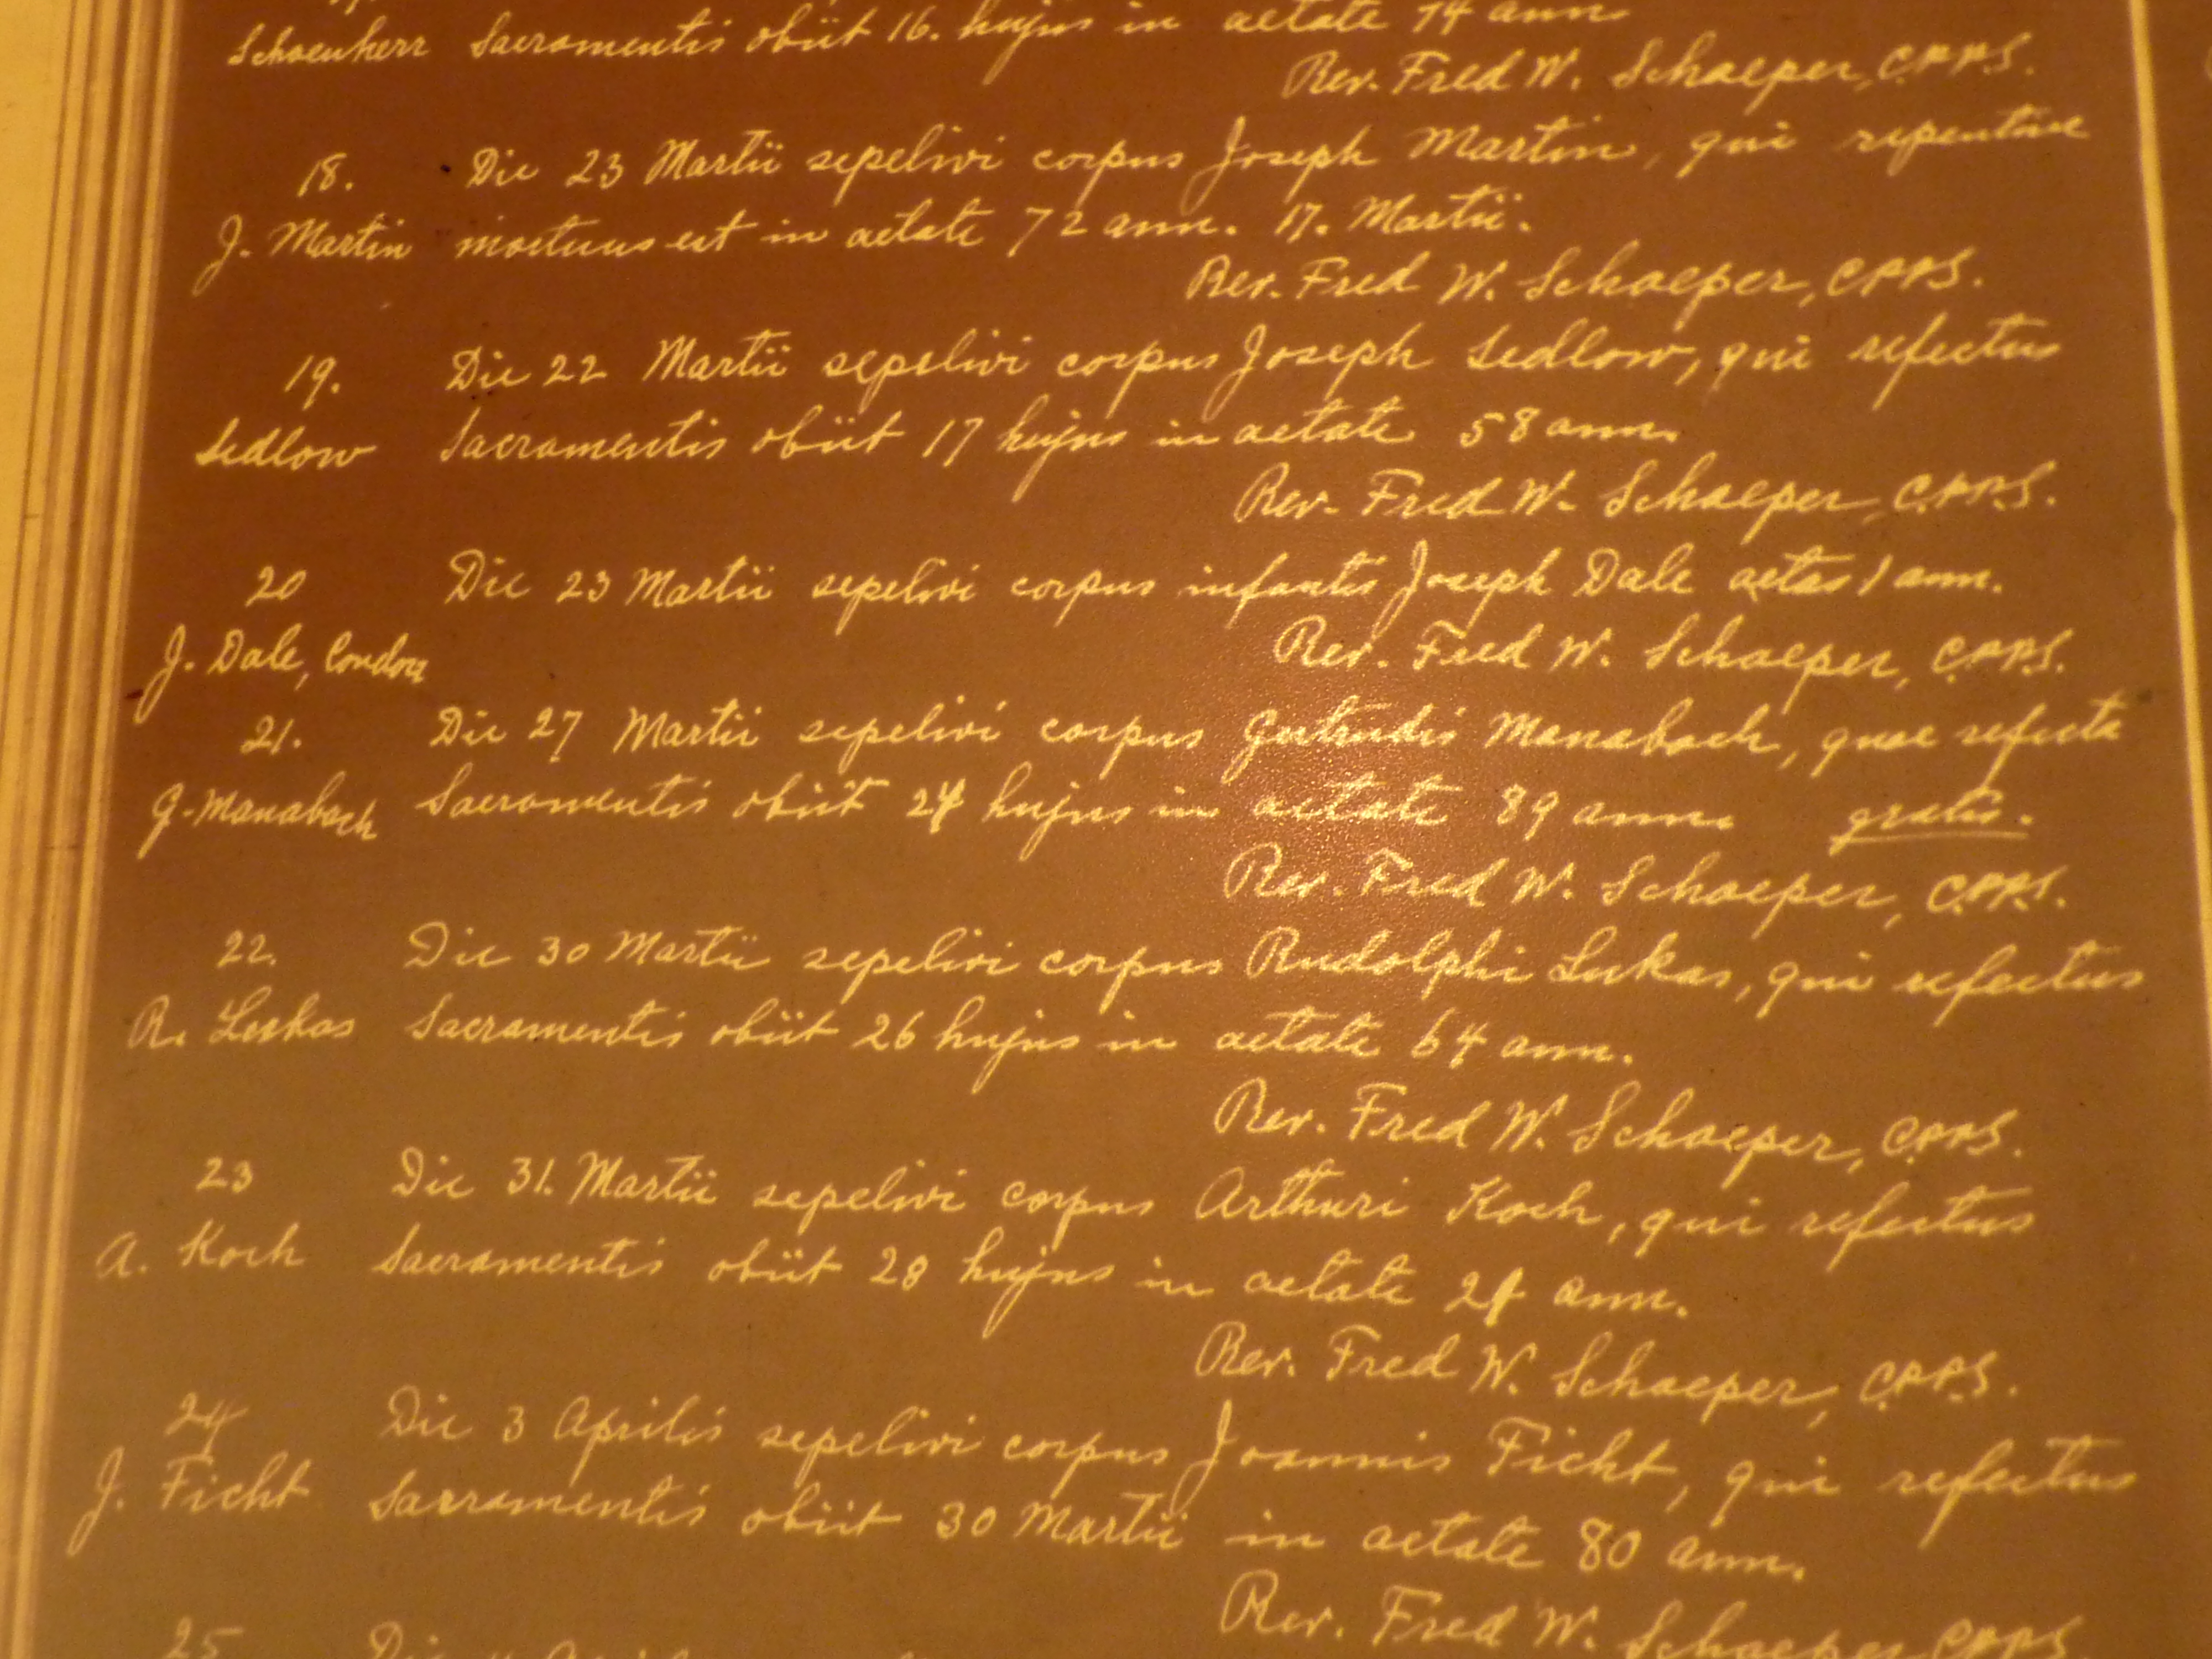 Schoenherr Sacramentis obiit 16. hujus in aetate 74 ann
Rev. Fred W. Schaeper, C.PP.S.
18. Die 23 Martii sepelivi corpus Joseph Martin, qui repentine
J. Martin mortuus est in aetate 72 ann. 17. Martii.
Rev. Fred W. Schaeper, C.PP.S.
19. Die 22 Martii sepelivi corpus Joseph Sedlow, qui refectus
Sedlow Sacramentis obiit 17 hujus in aetate 58 ann.
Rev. Fred W. Schaeper, C.PP.S.
20 Die 23 Martii sepelivi corpus infantis Joseph Dale aetas 1 ann.
J. Dale, London Rev. Fred W. Schaeper, C.PP.S.
21. Die 27 Martii sepelivi corpus Gertrudis Manabach, quae refecta
G. Manabach Sacramentis obiit 24 hujus in aetate 89 ann. gratis.
Rev. Fred W. Schaeper, C.PP.S.
22. Die 30 Martii sepelivi corpus Rudolphi Lukas, qui refectus
R. Lukas Sacramentis obiit 26 hujus in aetate 64 ann.
Rev. Fred W. Schaeper, C.PP.S.
23 Die 31. Martii sepelivi corpus Arthuri Koch, qui refectus
A. Koch Sacramentis obiit 28 hujus in aetate ann.
Rev. Fred W. Schaeper, C.PP.S.
24 Die 3 Aprilis sepelivi corpus Joannis Ficht, qui refectus
J. Ficht Sacramentis obiit 30 Martii in aetate 80 ann.
Rev. Fred W. Schaeper C.PP.S.
25 Die